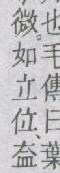 也毛傳曰葉
微如立位、益